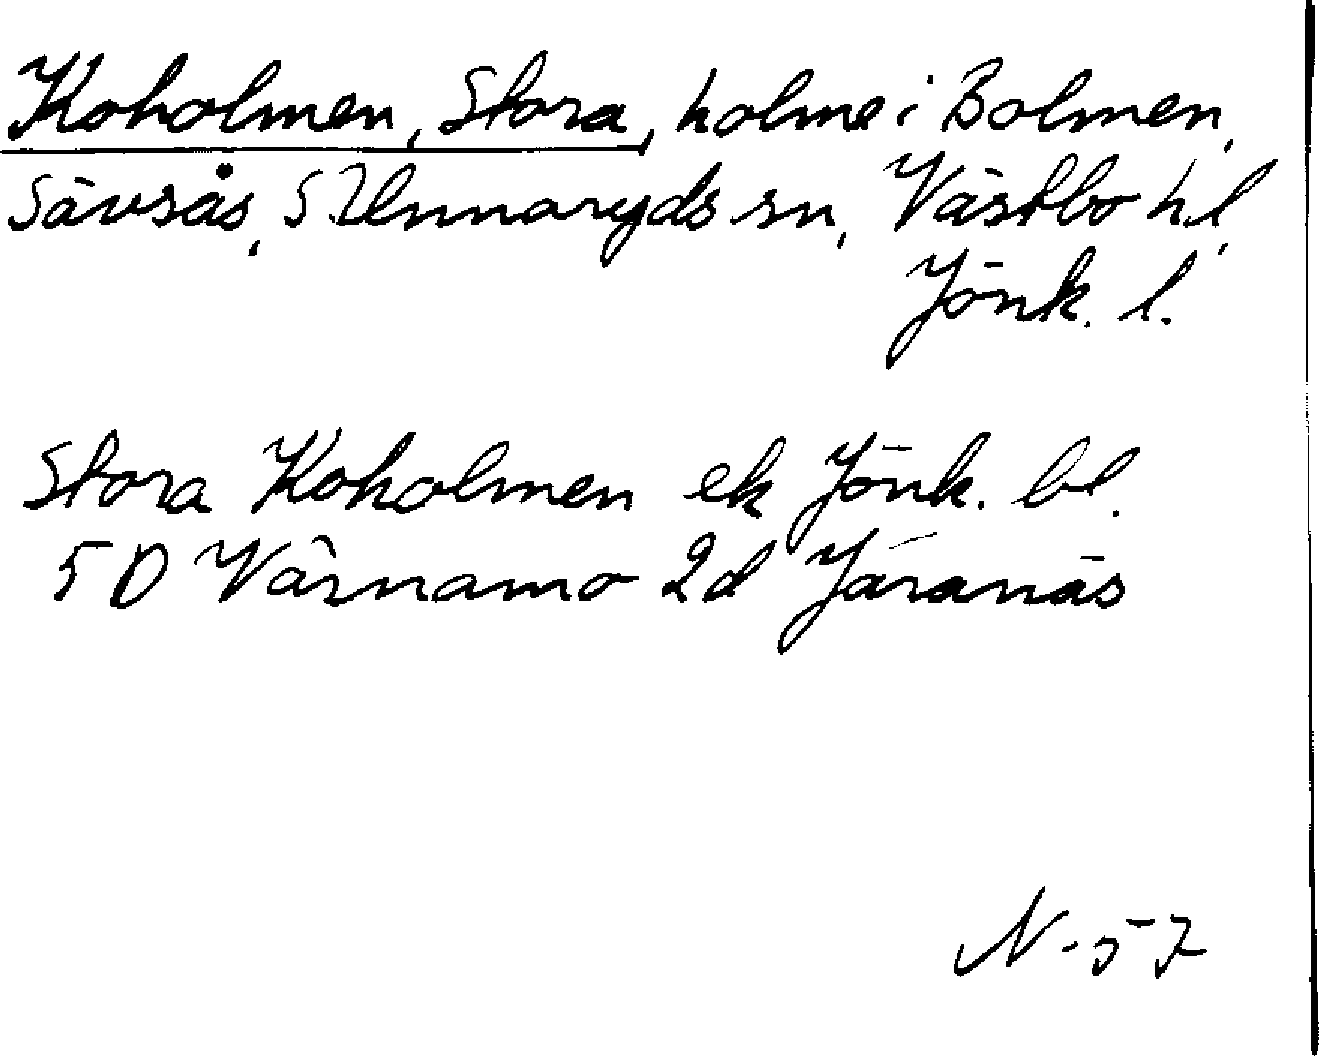 Koholmen, Stora, holme i Bolmen,
Sävsås, S Unnaryds sn, Västbo hd,
Jönk. l.
Stora Koholmen ek Jönk. bl.
5D Värnamo 2d Järanäs
N-57